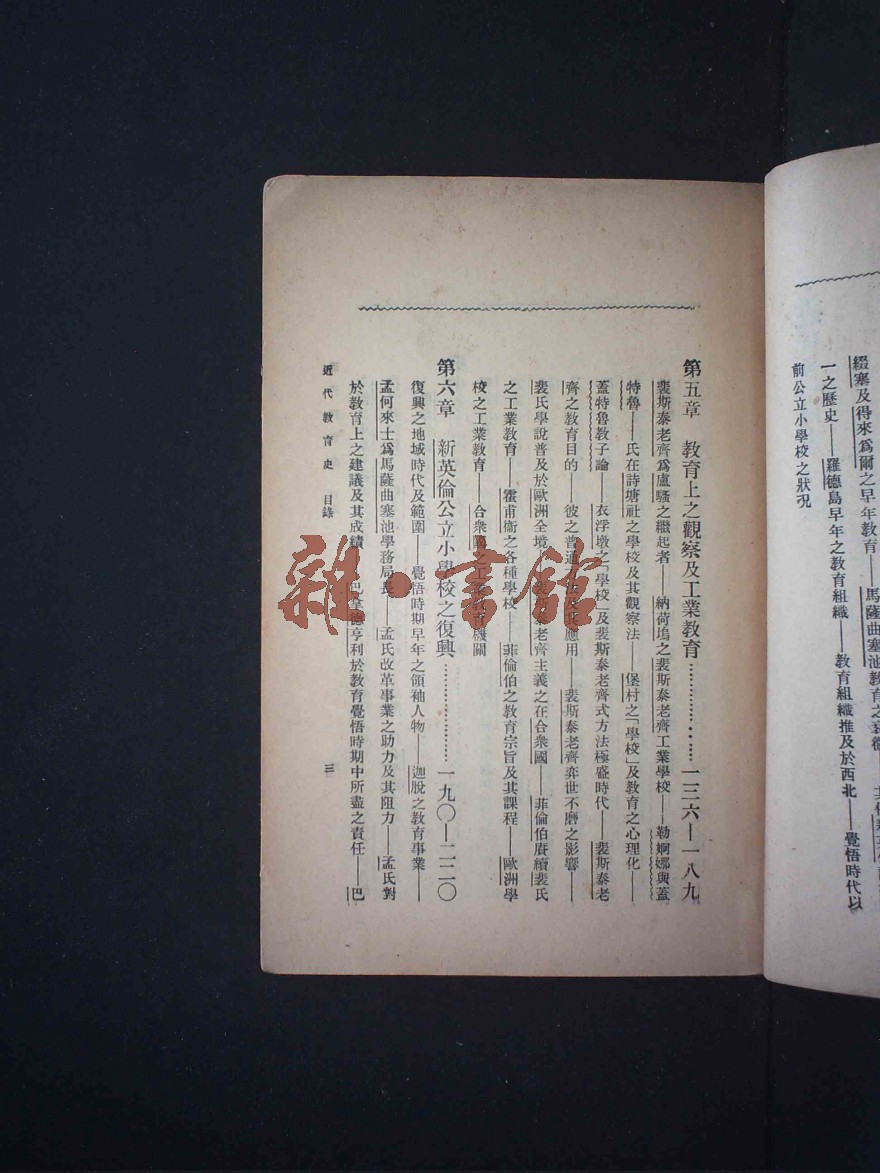 綴塞及得來爲爾之早年教育——馬薩曲塞池教育之衰微——
一之歷史——羅德島早年之教育組織——教育組織推及於西北——覺悟時代以
前公立小學校之狀況
第五章 教育上之觀察及工業教育…………………一三六—一八九
裴斯泰老齊爲盧騷之繼起者——納荷塢之裴斯泰老齊工業學校——勒婀娜與蓋
特魯——氏在詩塘社之學校及其觀察法——堡村之「學校」及教育之心理化——
蓋特魯教子論——衣浮墩之「學校」及裴斯泰老齊式方法極盛時代——裴斯泰老
齊之教育目的——彼之普通方法及其應用——裴斯泰老齊弈世不磨之影響——
裴氏學說普及於歐洲全境——裴斯泰老齊主義之在合衆國——菲倫伯賡續裴氏
之工業教育——霍甫衞之各種學校——菲倫伯之教育宗旨及其課程——歐洲學
校之工業教育——合衆國之工業教育機關
第六章 新英倫公立小學校之復興…………………一九〇—二二〇
復興之地域時代及範圍——覺悟時期早年之領袖人物——迦脫之教育事業——
孟何來士爲馬薩曲塞池學務局長——孟氏改革事業之助力及其阻力——孟氏對
於教育上之建議及其成績——巴拿德亨利於教育覺悟時期中所盡之責任——巴
近代教育史 目錄 三
雜·書館